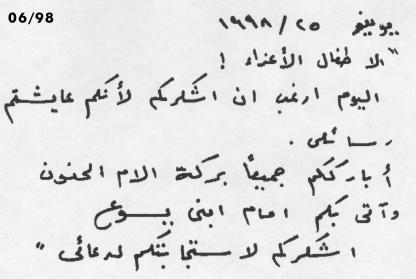 06/98
يونيو ٢٥/١٩٩٨
"الاطفال الأعزاء !
اليوم ارغب ان اشكركم لأنكم عايشتم
رسائلي .
أبارككم جميعاً بركة الام الحنون
وآتي بكم امام ابني يسوع
اشكركم لاستجابتكم لدعائي "